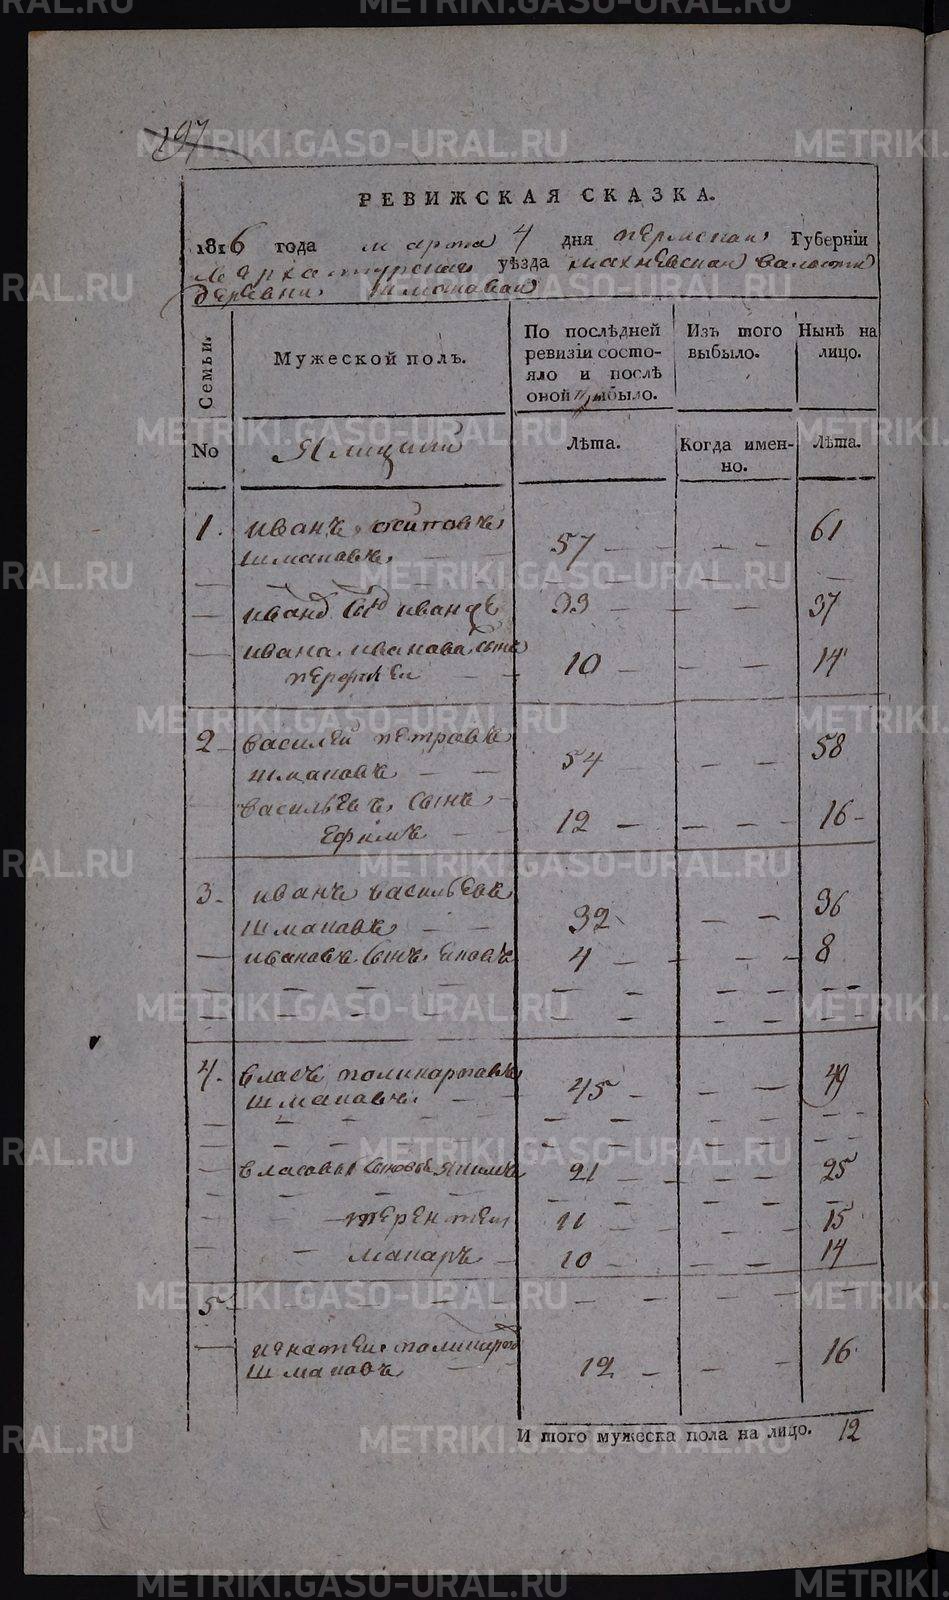 197
РЕВИЖСКАЯ СКАЗКА.
1816 года марта 4 дня пермскай Губерніи
верхатурскаг уѣзда махневскай валости
деревни шмаковай
Семьи.
Мужеской полъ.
По послѣдней ревизіи состояло и послѣ оной прибыло.
Изъ того выбыло.
Нынѣ на лицо.
No
Ямщики
Лѣта.
Когда именно.
Лѣта.
1. иванъ осиповъ
шмаковъ 57 61
иванъ 33 37
ивана иванова сынъ
10 14
2 василей петровъ
шмаковъ 54 58
васильевъ сынъ
ефимъ 12 16
3. иванъ васильевъ
шмаковъ 32 36
ивановъ сынъ 4 8
4. власъ поликарповъ
шмаковъ 45 49
власовы сыновья якимъ 21 25
терентей 11 15
макаръ 10 14
5
игнатей поликарпо
шмаковъ 12 16
И того мужеска пола на лицо. 12
METRIKI.GASO-URAL.RU